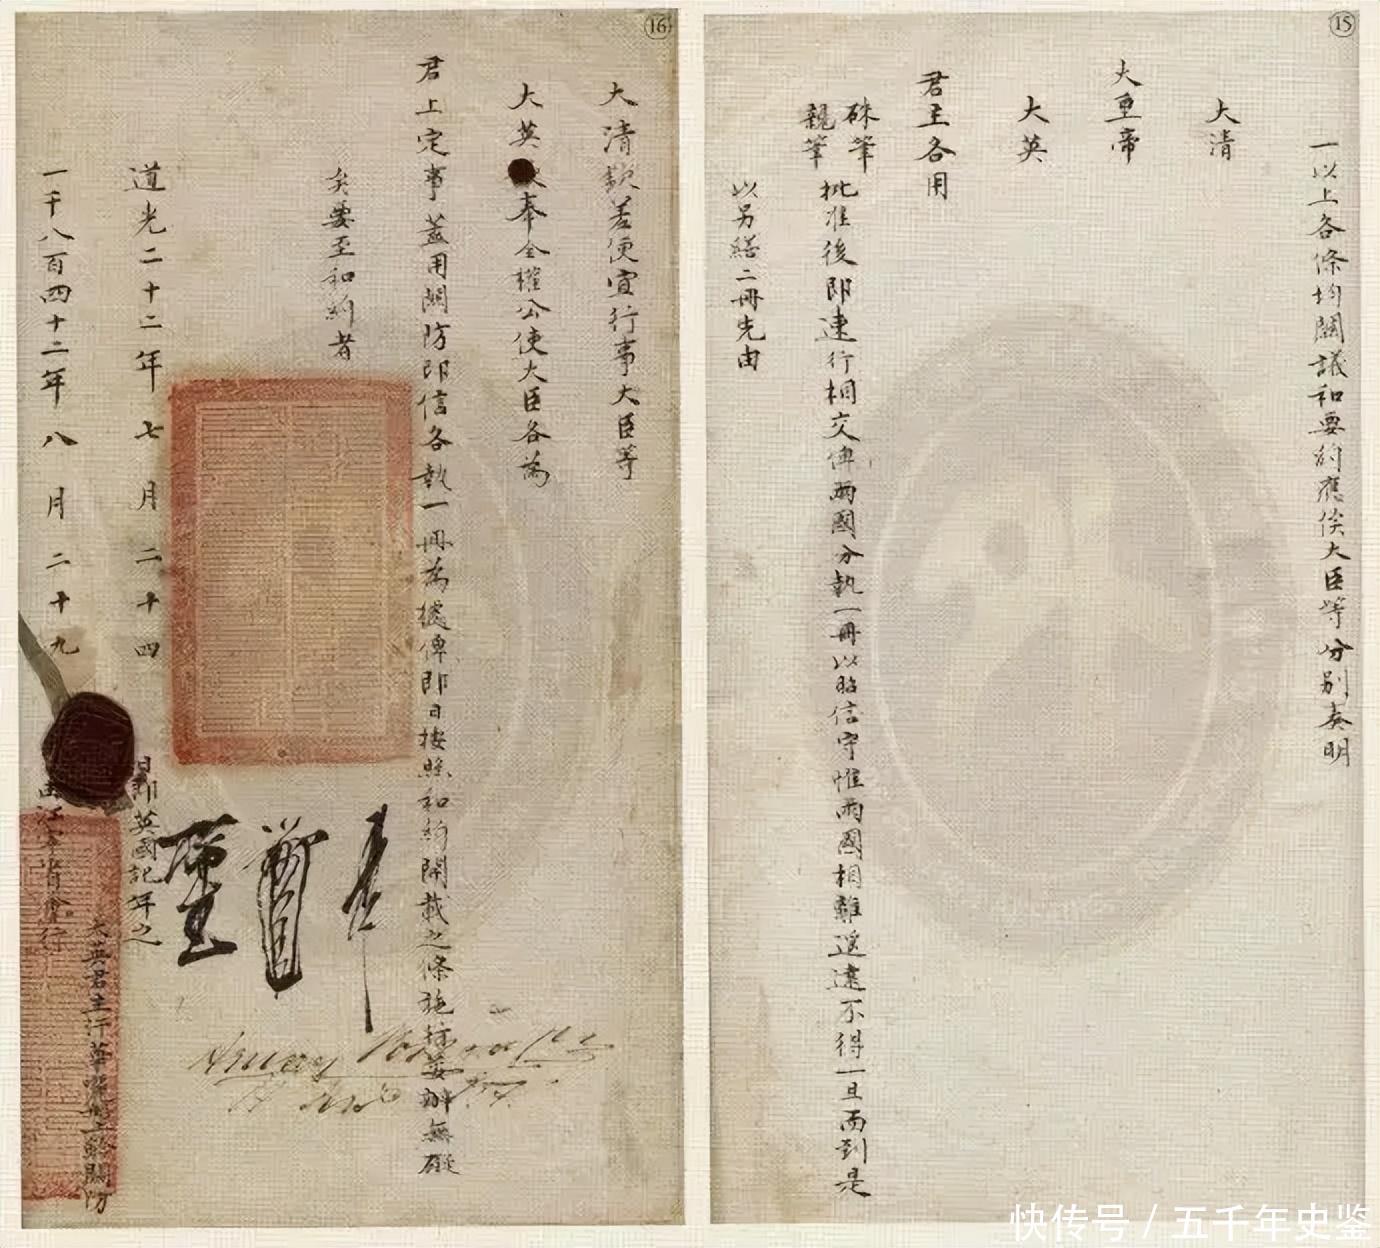 ⑮
一以上各條均關議和要約應俟大臣等分別奏明
大清
大皇帝
大英
君主各用
硃筆
親筆
批准後即速行相交俾兩國分執一冊以昭信守惟兩國相離遥遠不得一旦而到是
以另繕二冊先由
⑯
大清欽差便宜行事大臣等
大英
奉全權公使大臣各為
君上定事蓋用關防即信各執一冊為據俾即日按照和約開載之條施行妥辦無礙
矣要至和約者
道光二十二年七月二十四
日即英國記年之
一千八百四十二年八月二十九
由江寧省會行
大英君主汗華
船上鈐關防
快传号 / 五千年史鉴